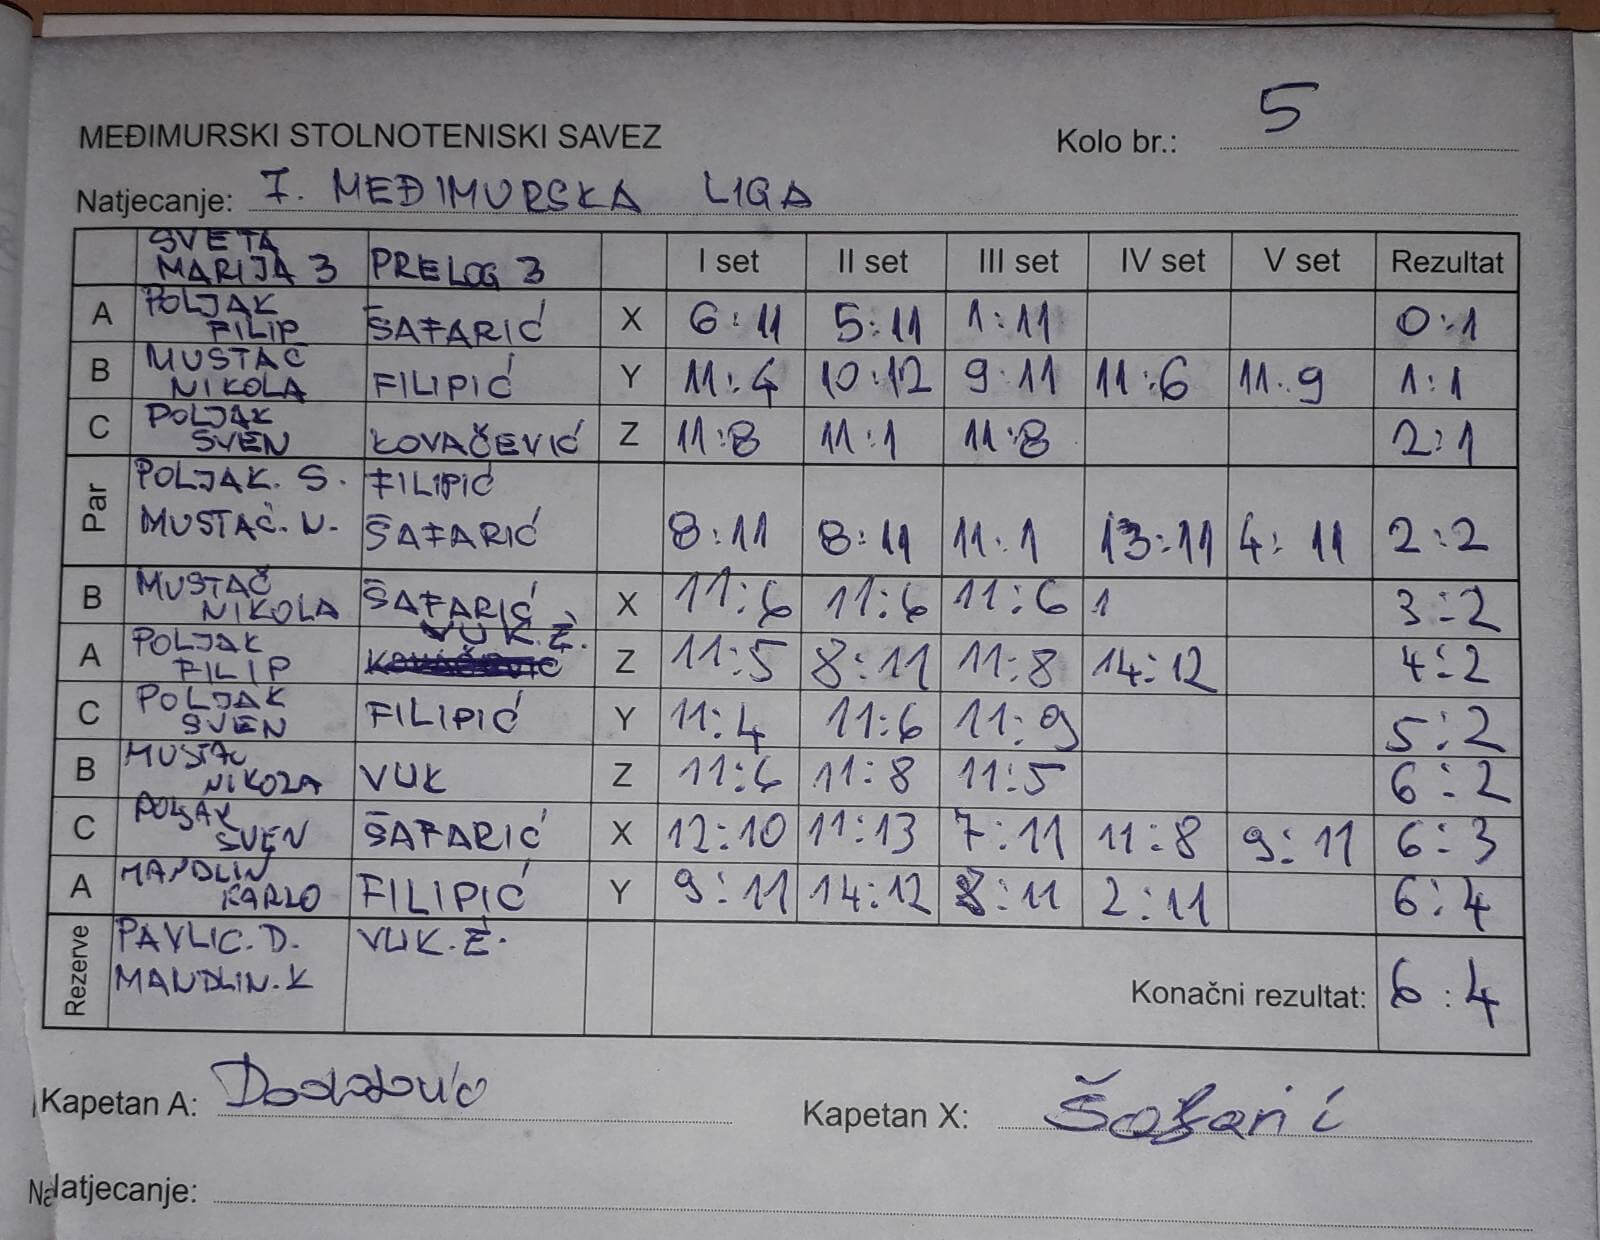 MEĐIMURSKI STOLNOTENISKI SAVEZ
Kolo br.: 5
Natjecanje: 7. MEĐIMURSKA LIGA
SVETA MARIJA 3 PRELOG 3 I set II set III set IV set V set Rezultat
A POLJAK FILIP ŠAFARIĆ X 6:11 5:11 1:11 0:1
B MUSTAČ NIKOLA FILIPIĆ Y 11:4 10:12 9:11 11:6 11:9 1:1
C POLJAK SVEN KOVAČEVIĆ Z 11:8 11:1 11:8 2:1
Par POLJAK. S. FILIPIĆ
MUSTAČ. N. ŠAFARIĆ 8:11 8:11 11:1 13:11 4:11 2:2
B MUSTAČ NIKOLA ŠAFARIĆ X 11:6 11:6 11:6 1 3:2
A POLJAK FILIP VUK. Ž. Z 11:5 8:11 11:8 14:12 4:2
C POLJAK SVEN FILIPIĆ Y 11:4 11:6 11:9 5:2
B MUSTAČ NIKOLA VUK Z 11:6 11:8 11:5 6:2
C POLJAK SVEN ŠAFARIĆ X 12:10 11:13 7:11 11:8 9:11 6:3
A MANDLIN KARLO FILIPIĆ Y 9:11 14:12 8:11 2:11 6:4
Rezerve PAVLIC. D. VUK. Ž.
MANDLIN. K
Konačni rezultat: 6:4
Kapetan A:
Kapetan X: Šafarić
Natjecanje: